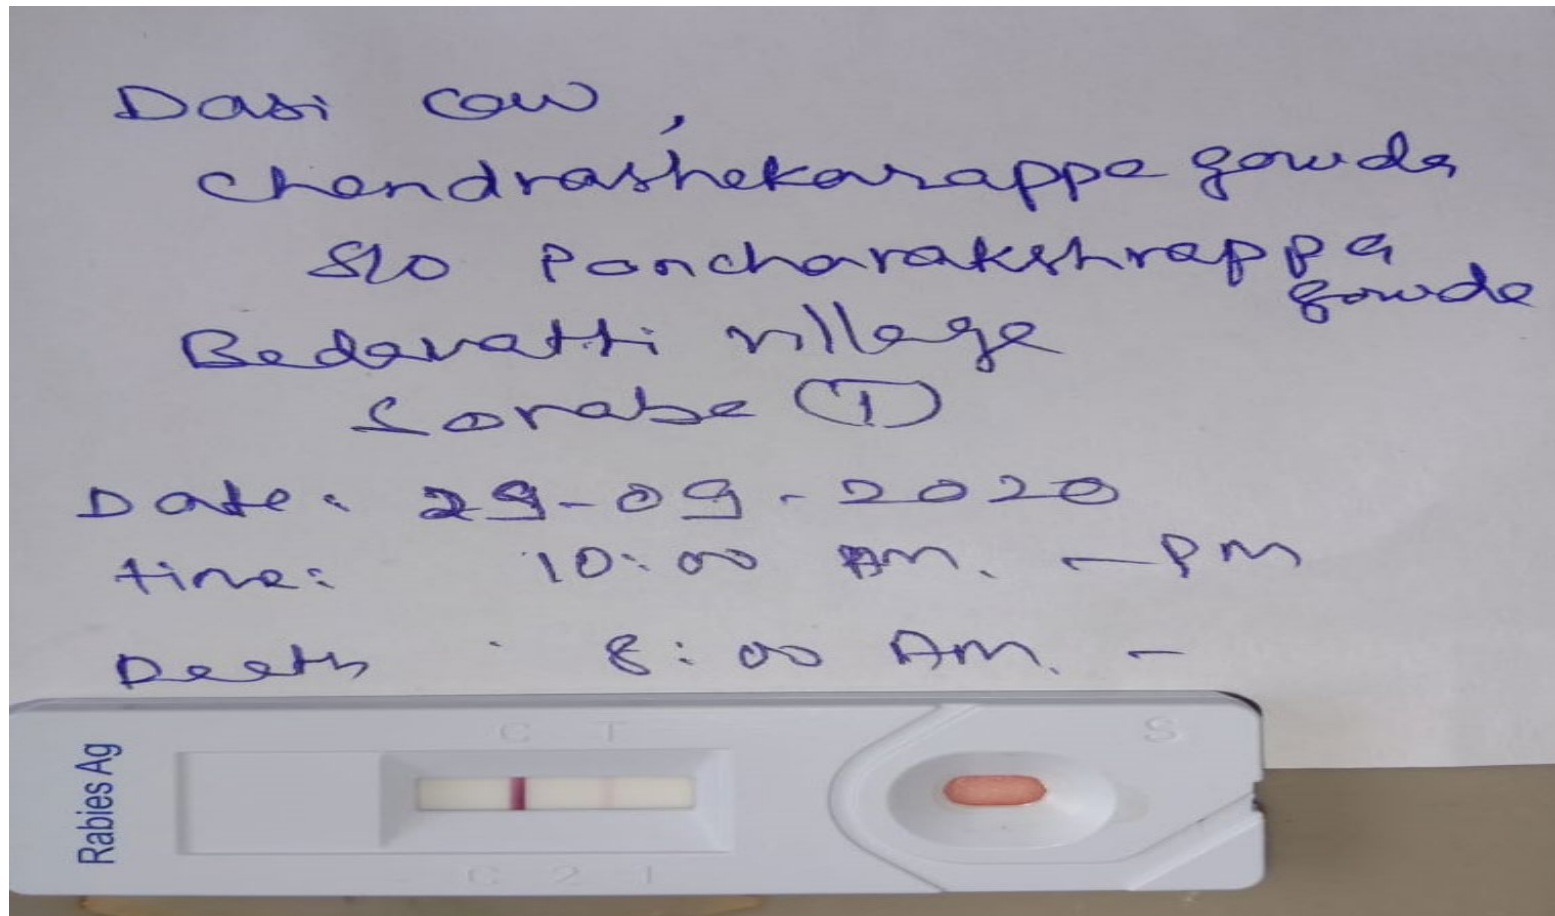 Dasi cow,
Chandrashekarappa gowda
S/o Pancharakshrappa
gowda
Bedavatti village
Soraba (T)
Date: 29-09-2020
time: 10:00 AM. - PM
Death 8:00 AM. -
C T S
Rabies Ag
C 2 1